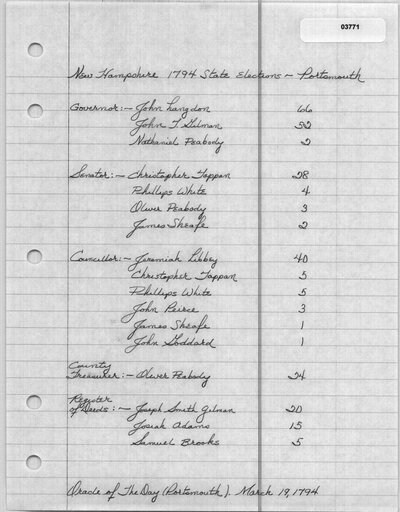 03771
New Hampshire 1794 State Elections - Portsmouth
Governor:- John Langdon 66
John T. Gilman 52
Nathaniel Peabody 2
Senator:- Christopher Toppan 28
Phillips White 4
Oliver Peabody 3
James Sheafe 2
Councillor:- Jeremiah Libbey 40
Christopher Toppan 5
Phillips White 5
John Peirce 3
James Sheafe 1
John Goddard 1
County
Treasurer:- Oliver Peabody 24
Register
of Deeds:- Joseph Smith Gilman 20
Josiah Adams 15
Samuel Brooks 5
Oracle of The Day (Portsmouth). March 19, 1794